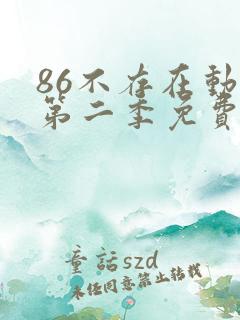 86不存在動
第二季免費
童話szd
未经同意禁止转载